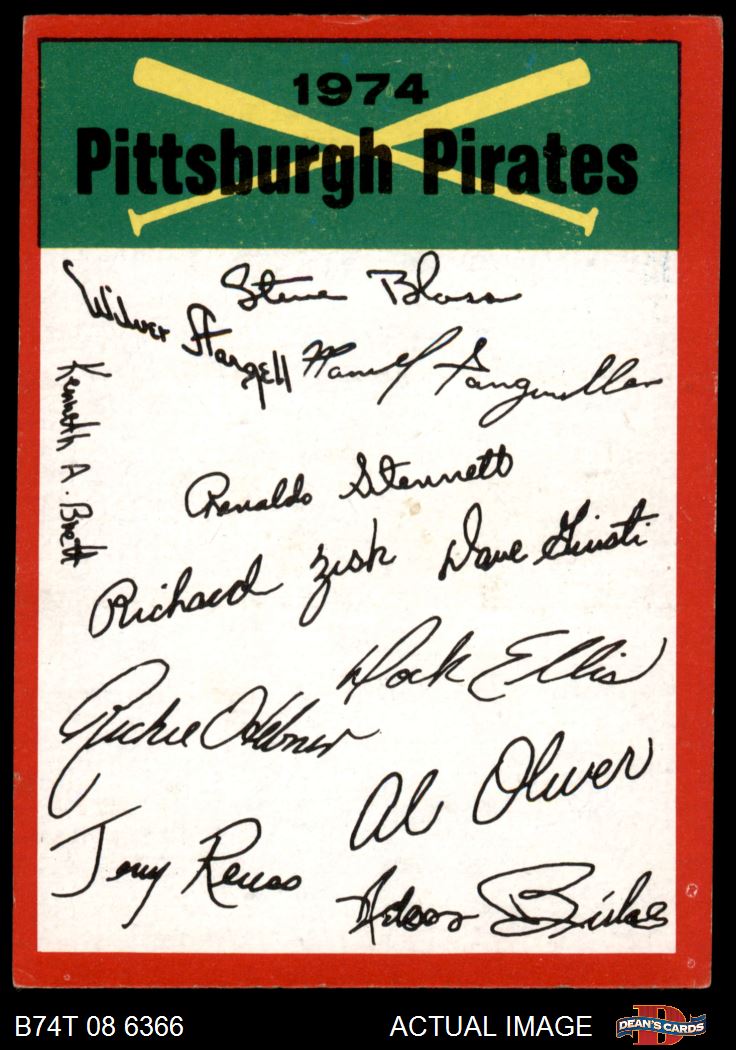 1974
Pittsburgh Pirates
Steve Blass
Wilver Stargell
Manuel Sanguillen
Kenneth A. Brett
Renaldo Stennett
Richard Zisk
Dave Giusti
Dock Ellis
Richie Hebner
Al Oliver
Jerry Reuss
B74T 08 6366
ACTUAL IMAGE
D
DEAN'S CARDS